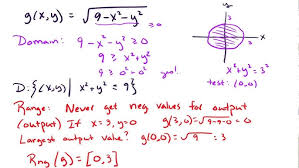 g(x,y) = √9-x²-y²
≥0
Domain: 9-x²-y² ≥ 0
9 ≥ x²+y²
9 ≥ 0²+0² yes!
D: {(x,y) | x²+y² = 9}
3
3
x
y
x²+y² = 3²
test: (0,0)
Range: Never get neg values for output
(output) If x=3, y=0 g(3,0) = √9-9-0 = 0
Largest output value? g(0,0) = √9 = 3
Rng (g) = [0,3]